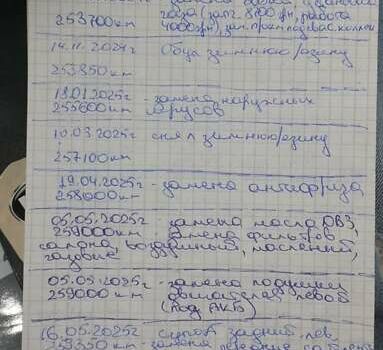 253700км газа (запч. 8700грн, работа
4000грн), зап.
14.11.2024г Обул зимнюю резину
253850км
18.01.2025г - замена наружных
255600км шрусов
10.03.2025г снял зимнюю резину
257100км
19.04.2025г - замена антифриза
258000км
05.05.2025г - замена масло ДВЗ,
259000км замена фильтров
салона, воздушный, масленный,
газовые
05.05.2025г - замена подушки
259000км двигателя левой
(под АКБ)
16.05.2025г задний лев.
259350км - замена